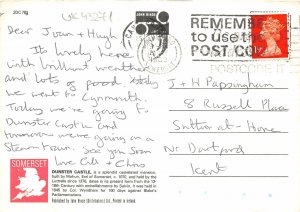 2DC 762
UK43271
JOHN HINDE
REMEMBER
to use the
POST CODE
Dear Joan + Hugh
Its lovely here
with brilliant weather
and lots of good
we went to Lynmouth.
Today we're going to
Dunster Castle and
tomorrow we're going on a
Steam train. See you soon
love + Chris
J + H Pappingham
8 Russell Place
Sutton-at-Hone
Nr Dartford
Kent
SOMERSET
DUNSTER CASTLE, is a splendid castellated mansion,
built by Mohun, Earl of Somerset, c. 1070, and held by the
Luttrells since 1376, dates in its present form from the 13-
18th Century with embellishments by Salvin. It was held in
1645 by Col. Wyndham for 160 days against Blake's
Parliamentarians.
Published by John Hinde (Distributors) Ltd. Printed in Ireland.